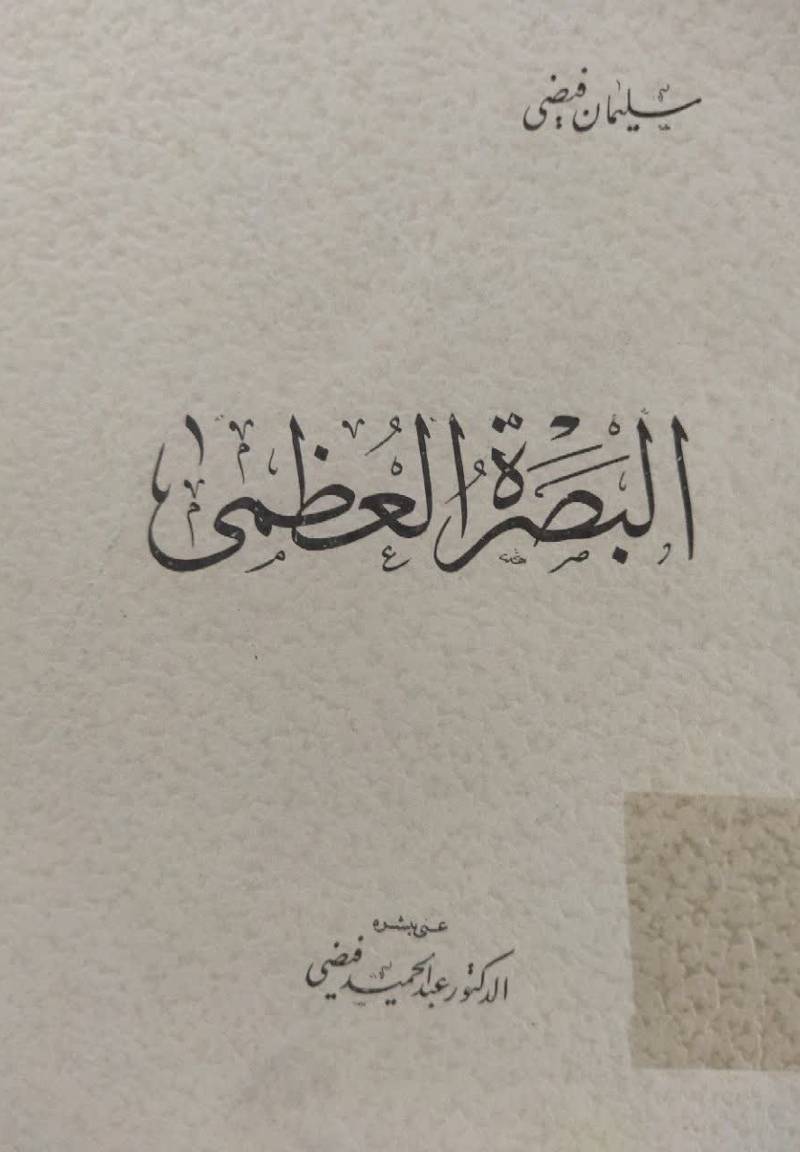 سليمان فيضي
البَصْرَةُ العُظمى
عني بنشره
الدكتور عبد الحميد فيضي